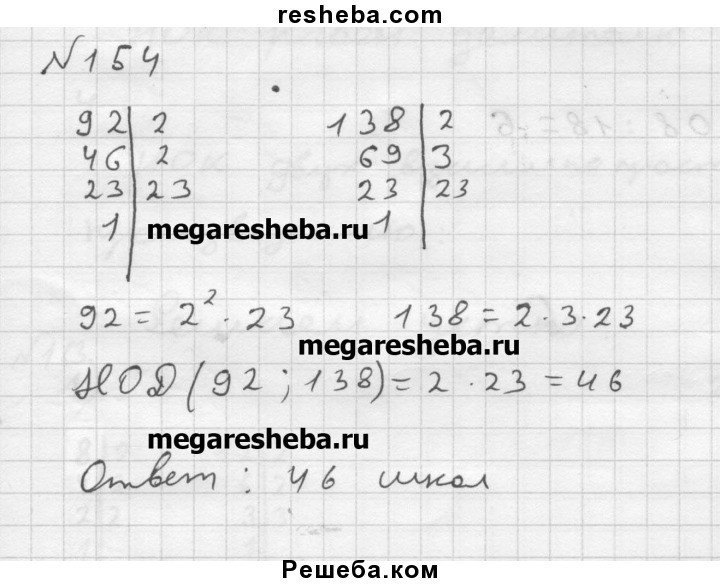 resheba.com
№154
92 | 2    138 | 2
46 | 2    69 | 3
23 | 23    23 | 23
1 |    1 |
megaresheba.ru
92 = 2² · 23    138 = 2 · 3 · 23
megaresheba.ru
НОД (92 ; 138) = 2 · 23 = 46
megaresheba.ru
Ответ : 46 школ
Решеба.ком